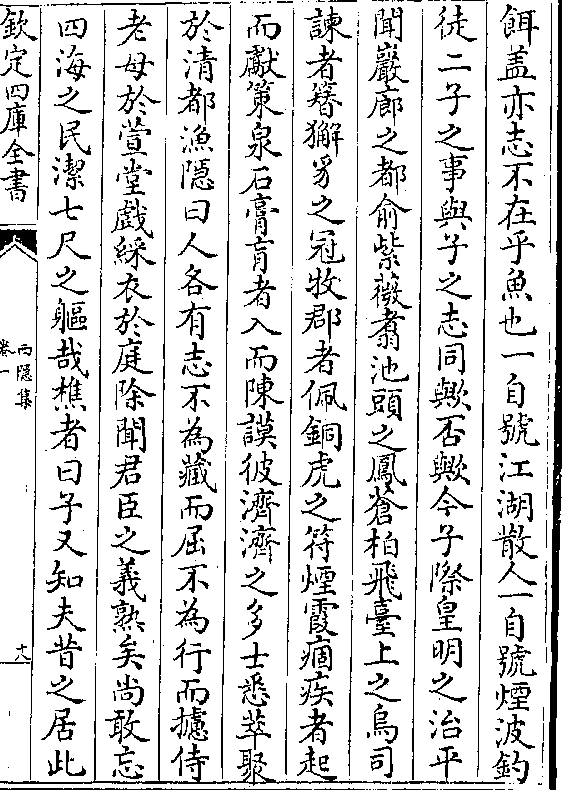 餌盖亦志不在乎魚也一自號江湖散人一自號煙波釣
徒二子之事與子之志同歟否歟今子際皇明之治平
聞巖廊之都俞紫薇翥池頭之鳳蒼柏飛臺上之烏司
諫者簪獬豸之冠牧郡者佩銅虎之符煙霞痼疾者起
而獻策泉石膏肓者入而陳謨彼濟濟之多士悉萃聚
於清都漁隠曰人各有志不為藏而屈不為行而攄侍
老母於萱堂戲綵衣於庭除聞君臣之義熟矣尚敢忘
四海之民潔七尺之軀哉樵者曰子又知夫昔之居此
欽定四庫全書
西隠集
卷一
十八